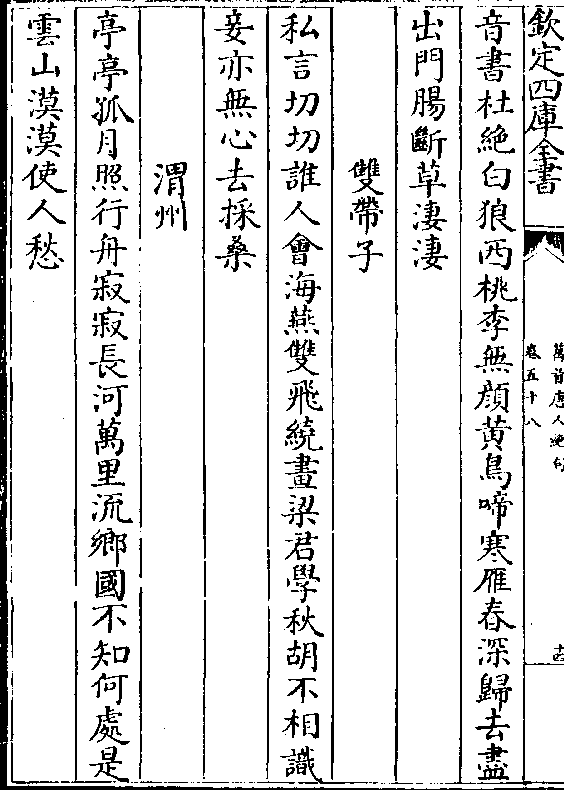 欽定四庫全書
萬首唐人絶句
卷五十八
音書杜絶白狼西桃李無顔黄鳥啼寒雁春深歸去盡
出門腸斷草淒淒
雙帶子
私言切切誰人會海燕雙飛繞畫梁君學秋胡不相識
妾亦無心去採桑
渭州
亭亭孤月照行舟寂寂長河萬里流鄉國不知何處是
雲山漠漠使人愁